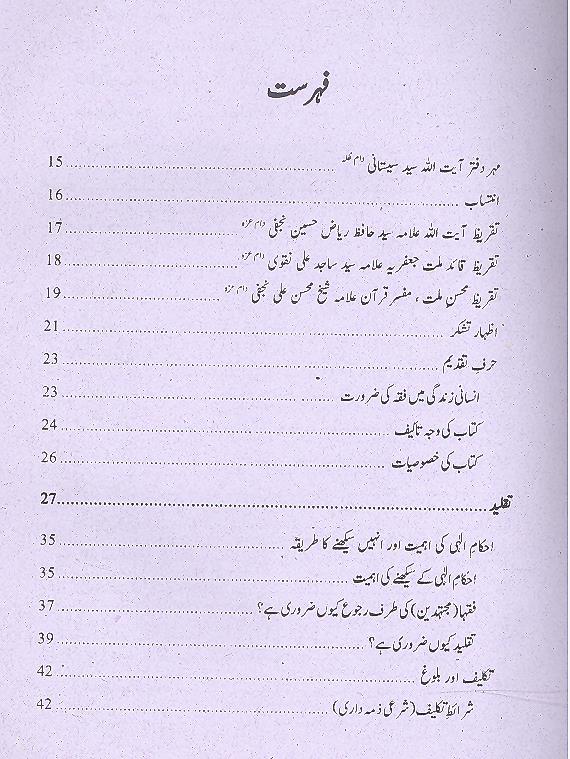 فہرست
مہر دفتر آیت اللہ سید سیستانی دام ظلہ ........ 15
انتساب ........ 16
تقریظ آیت اللہ علامہ سید حافظ ریاض حسین نجفی دام عزہ ........ 17
تقریظ قائد ملت جعفریہ علامہ سید ساجد علی نقوی دام عزہ ........ 18
تقریظ محسن ملت ، مفسر قرآن علامہ شیخ محسن علی نجفی دام عزہ ........ 19
اظہار تشکر ........ 21
حرفِ تقدیم ........ 23
انسانی زندگی میں فقہ کی ضرورت ........ 23
کتاب کی وجہ تالیف ........ 24
کتاب کی خصوصیات ........ 26
تقلید ........ 27
احکامِ الٰہی کی اہمیت اور انہیں سیکھنے کا طریقہ ........ 35
احکامِ الٰہی کے سیکھنے کی اہمیت ........ 35
فقہا (مجتہدین) کی طرف رجوع کیوں ضروری ہے؟ ........ 37
تقلید کیوں ضروری ہے؟ ........ 39
تکلیف اور بلوغ ........ 42
شرائطِ تکلیف (شرعی ذمہ داری) ........ 42